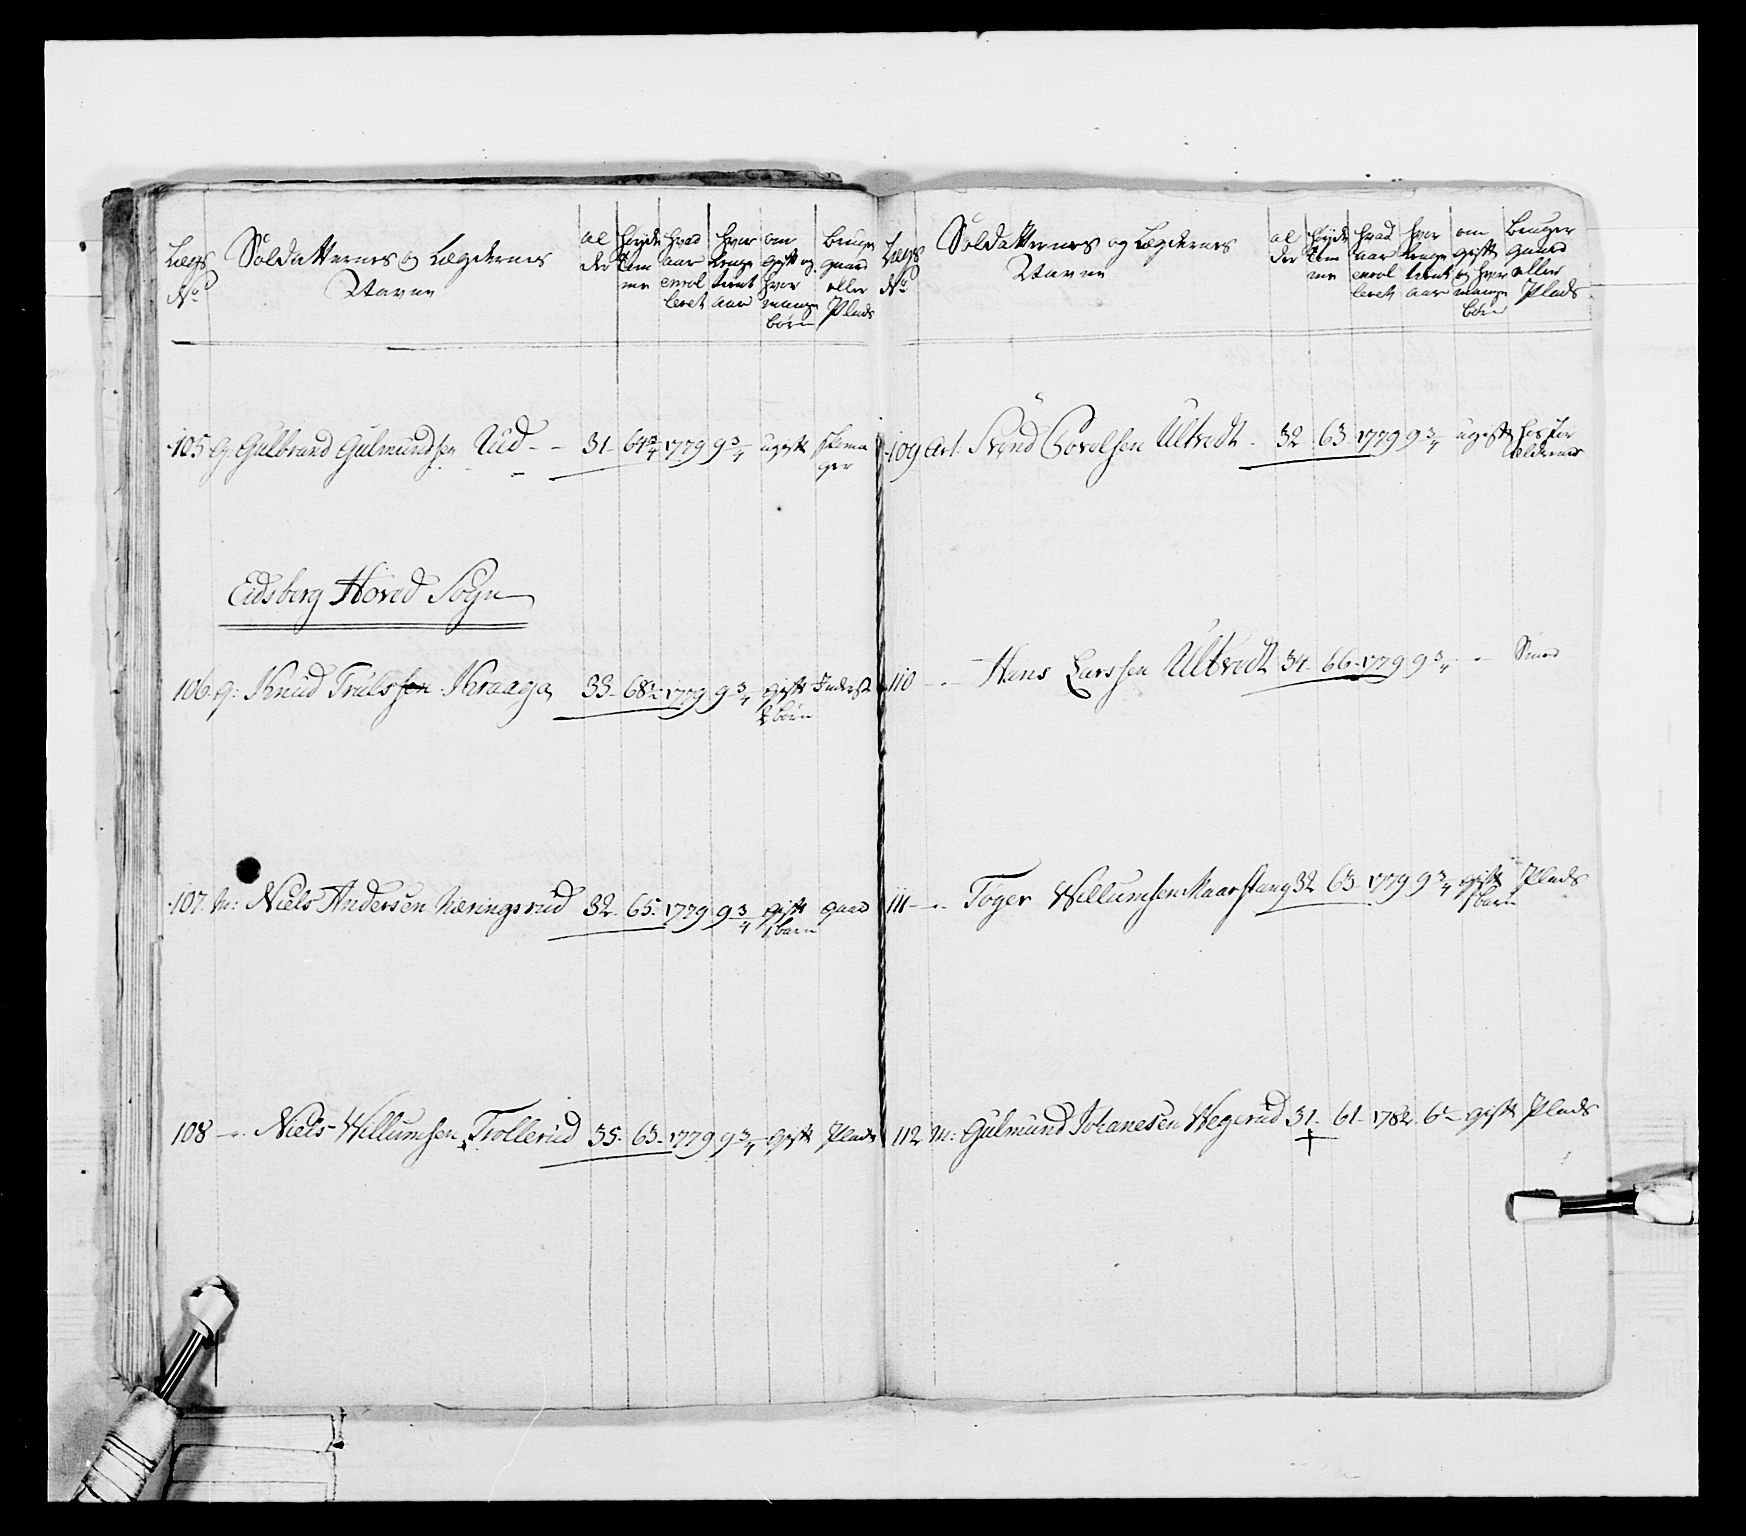 Lægs No
Soldatternes og Lægdernes Navne
al der
høyde Tom mer
hvad aar enrol leret
hvor lenge tient aar
om gift og hvor mange børn
bruger gaard eller Plads
105 g: Gulbrand Gulmundsen Rud - - 31 - 64 3/4 1779 9 3/4 ugift
Eidsberg Hoved Sogn
106. g: Knud Trulssen Kraaga 33 - 68 1/2 1779 9 3/4 gift 2 børn Inderst
107. M: Niels Andersen Næringsrud 32 - 65 - 1779 9 3/4 gift 1 barn gaard
108 - - Niels Willumsen Trollerud 35 - 63 - 1779 9 3/4 gift Plads
Lægs No
Soldatternes og Lægdernes Navne
al der
høyde Tom mer
hvad aar enrol leret
hvor lenge tient aar
om gift og hvor mange børn
bruger gaard eller Plads
109 Art: Svend Torelsen Ultvedt - 32 63 1779 9 3/4 ugift hos for ældrene
110 - - Hans Larssen Ultvedt 34 - 66 - 1779 9 3/4 - -
111 - - Toger Willumsen Kaarstang 32 63 - 1779 9 3/4 gift 1 barn Plads
112 M: Gulmund Johanesen Hegerud 31 - 61 - 1782. 6 - gift Plads